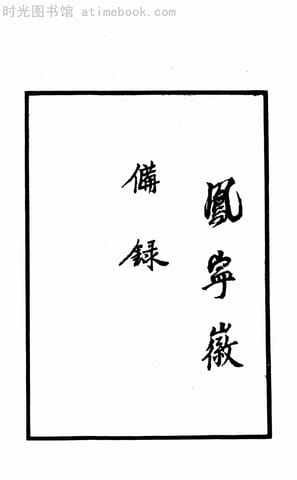 时光图书馆 atimebook.com
鳳寧徽
備錄